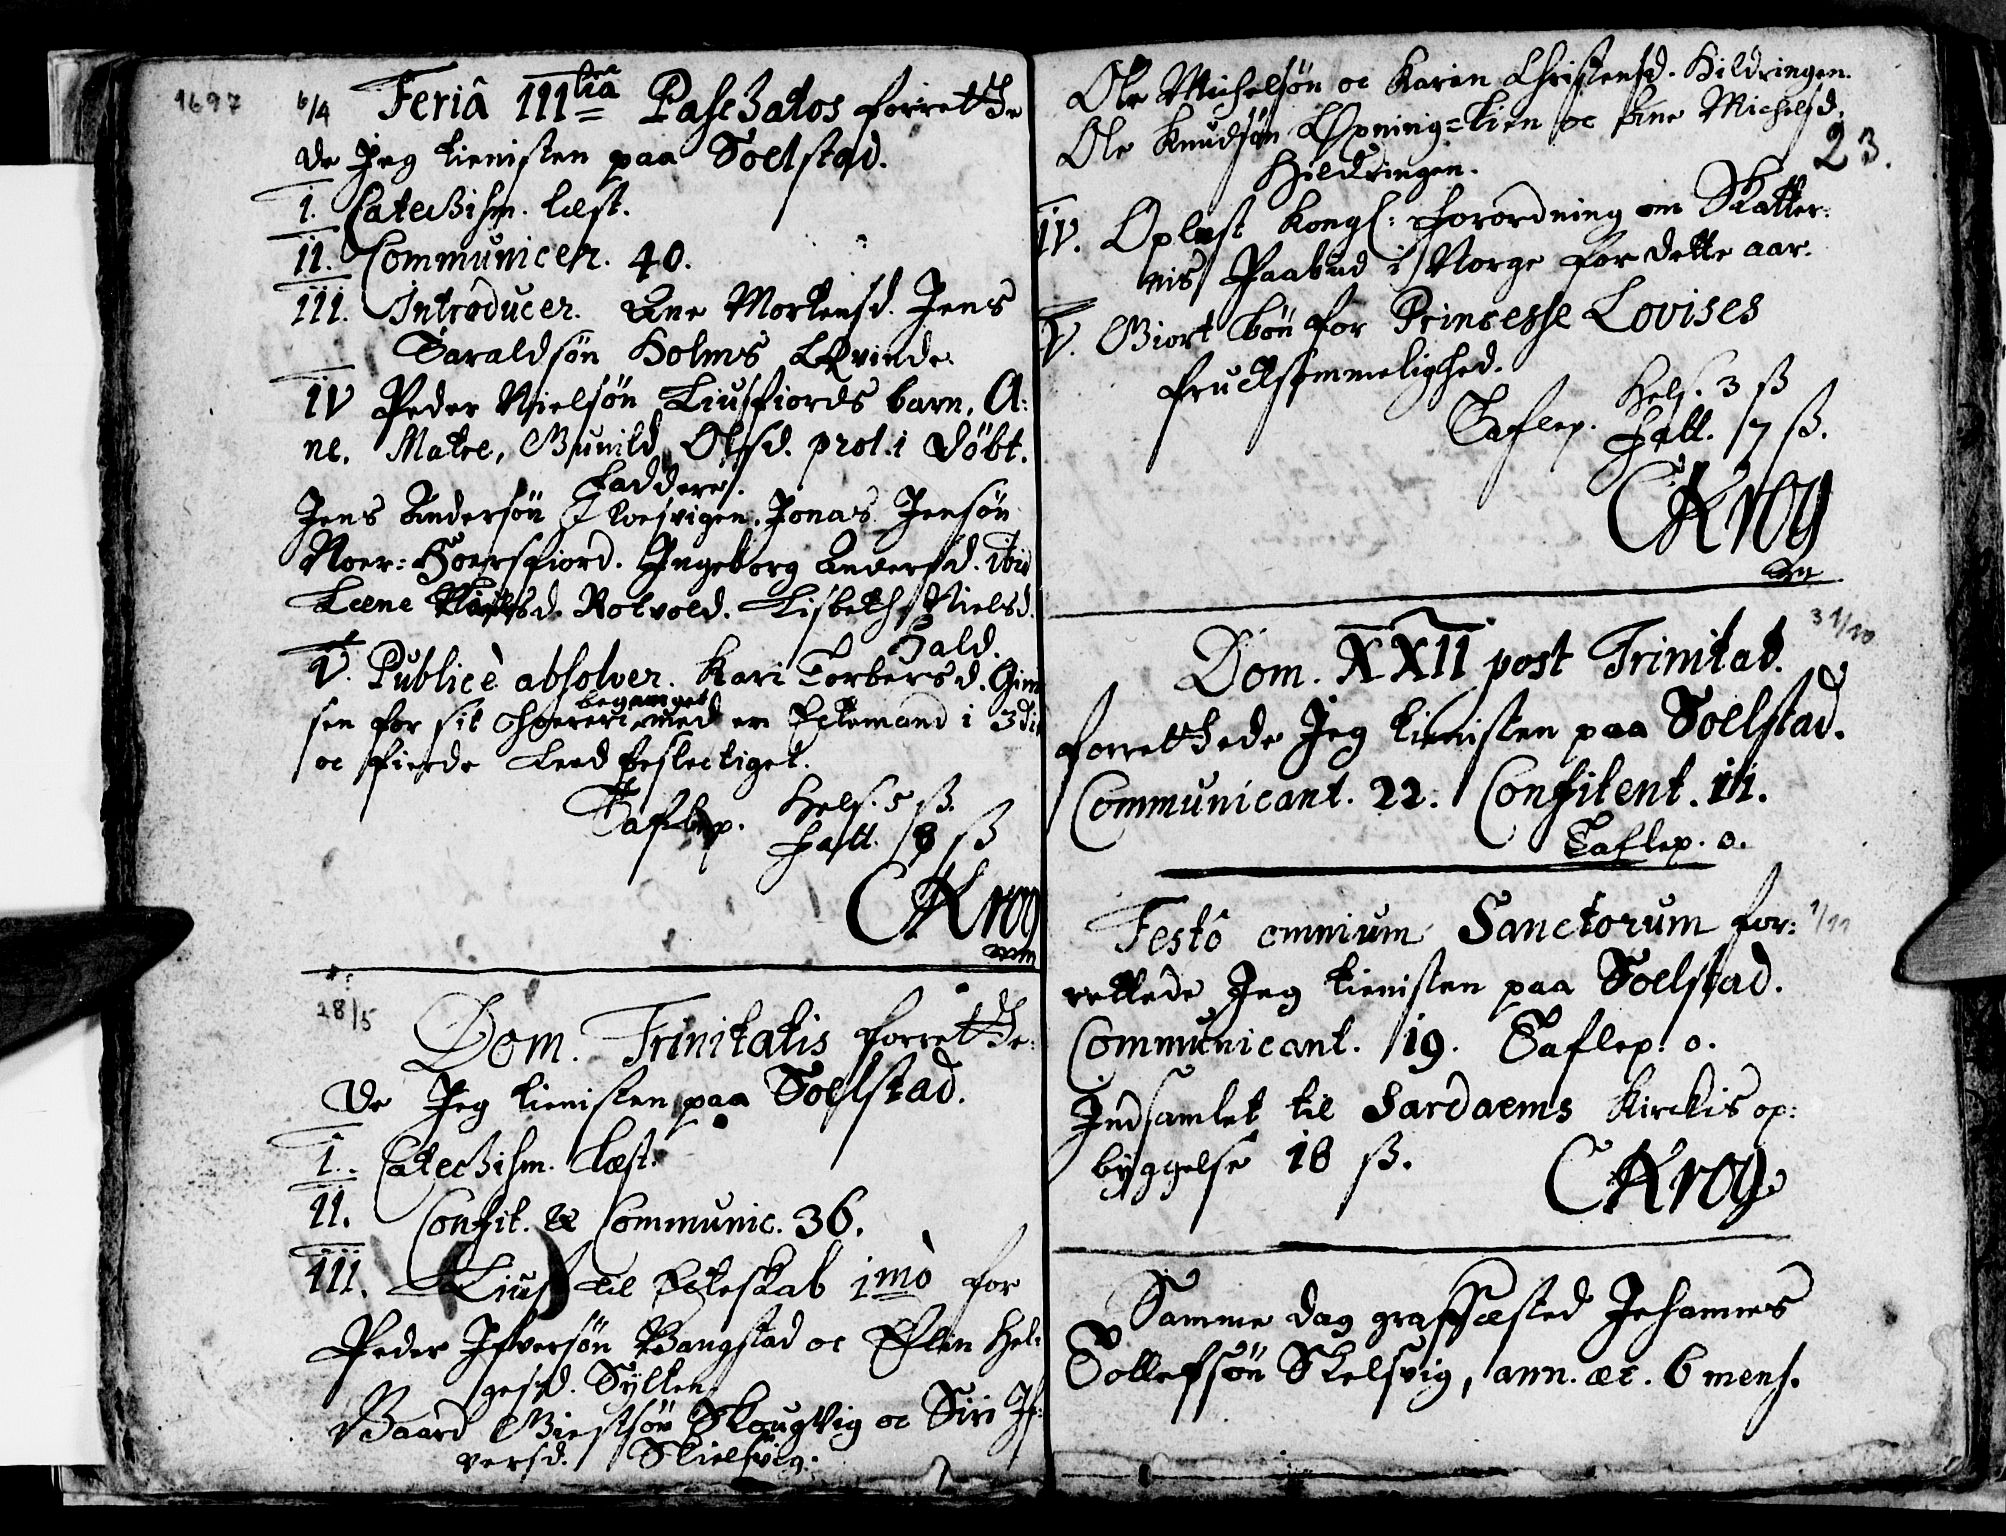 1697 6/4 Feriâ III tiâ Paschatos forrettHe
de Jeg tienisten paa Soelstad.
I. Catechism. læst.
II. Communicer. 40.
III. Introducer. Ane Mortensd. Jens
Haraldsøn Holms Qvinde.
IV Peder Nielsøn Liusfiords barn, A:
ne. Matre, Gunild Olsd. prol: döbt.
Faddere.
Jens Andersøn Jonas Jensøn
Noer: Ingeborg Andersd. ibid
Leene Rotvold. Lisbeth Nielsd.
Hald.
V. Publicè absolver. Kari Torbersd.
beganget
sen for sit med en Ectemand i 3die
oc fierde Leed beslectiget.
Taflep. Hels. 5 ß.
Fatt. 8 ß
CKrog
28/5
Dom. Trinitatis forrettHe:
de Jeg tienisten paa Soelstad.
I. Catechism. læst.
II. Confit. & Communic. 36.
III. Liust til Ecteskab 1mò for
Peder Ifversøn Bangstad oc Elen Hel:
gesd. Sylten
Baard SkougVig oc Siri If:
versd. Skielsvig.
Ole Michelsøn oc Karen Christensd. Hildringen.
Ole Knudsøn oc Ane Michelsd.
23.
Hildringen.
IV. Oplæst Kongl: Forordning om Skatter:
nis Paabud i Norge for dette aar.
V. Giort bøn for Princesse Lovises
fructsommelighed.
Taflep. Hels. 3 ß
Fatt. 7 ß.
CKrog
31/10
Dom. XXII post Trinitat.
forrettHede Jeg tienisten paa Soelstad.
Communicant. 22. Confitent. 11.
Taflep. 0.
Festô omnium Sanctorum for: 1/11
rettede Jeg tienisten paa Soelstad.
Communicant. 19. Taflep. 0.
Indsamlet til Sardaems Kirckis op:
byggelse 18 ß.
CKrog
Samme dag graffæsted Johannes
Tollefsøn Skelsvig, ann. æt. 6 mens.